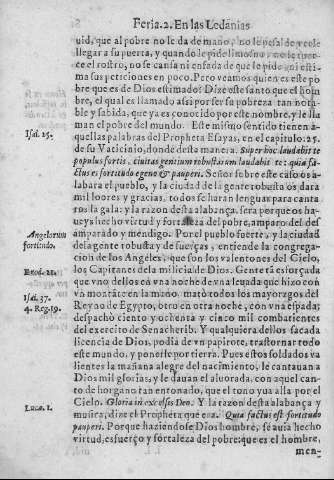 Feria. 2. En las Ledanias
uid, que al pobre no le da de mano, no le pesa de verle
llegar a su puerta, y quando le pide limosna, no le tuerce
ce el rostro, no se cansa ni enfada de que le pida, ni estima
sus peticiones en poco. Pero veamos quien es este po
bre que es de Dios estimado? Dize este santo que el hom
bre, el qual es llamado assi por ser su pobreza tan nota-
ble y sabida, que ya es conocido por este nombre, y le lla
man el pobre del mundo. Este mismo sentido tienen a-
Isai. 25.
quellas palabras del Propheta Esayas, en el capitulo: 25. de
su Vaticinio, donde desta manera: Super hoc laudabit te
populus fortis, ciuitas gentium robustarum laudabit te: quia fa-
ctus es fortitudo egeno & pauperi. Señor sobre este caso os a-
labara el pueblo, y la ciudad de la gente robusta os dara
mil loores y gracias, todos se haran lenguas para canta
ros la gala: y la razon desta alabança, sera porque os ha-
zeys hecho virtud y fortaleza del pobre, amparo del des
Angelorum
fortitudo.
amparado y mendigo. Por el pueblo fuerte, y la ciudad
de la gente robusta y de fuerças, entiende la congrega-
cion de los Angeles, que son los valentones del Cielo,
los Capitanes de la milicia de Dios. Gente tā esforçada
Exod. 12.
que vno dellos en vna noche de vna leuada que hizo cō
vn montāte en la mano, matò todos los mayorazgos del
Isai. 37.
4. Reg. 19.
Reyno de Egypto, otro en otra noche, con vna espada,
despachò ciento y ochenta y cinco mil combatientes
del exercito de Senacherib. Y qualquiera dellos sacada
licencia de Dios, podia de vn papirote, trastornar todo
este mundo, y ponerle por tierra. Pues estos soldados va
lientes la mañana alegre del nacimiento, le cantauan a
Dios mil glorias, y le dauan el aluorada, con aquel can-
to de horgano tan entonado, que el tono yua alla por el
Luca. 1.
Cielo. Gloria in excelsis Deo. Y la razon desta alabança y
musica, dize el Propheta que era. Quia factus est fortitudo
pauperi. Porque haziendose Dios hombre, se auia hecho
virtud, esfuerço y fortaleza del pobre: que es el hombre,
men-